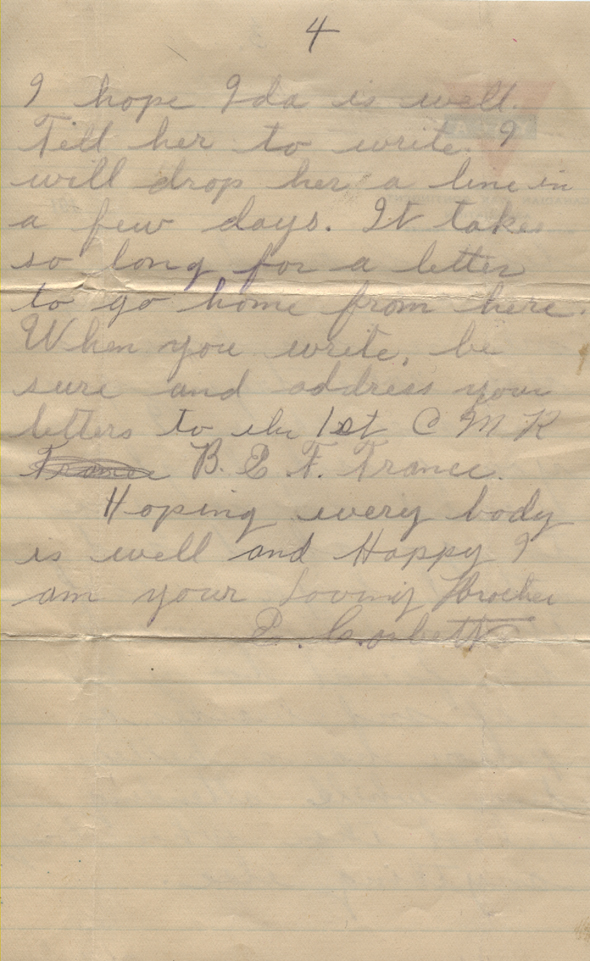 4
I hope Ida is well.
Tell her to write. I
will drop her a line in
a few days. It takes
so long for a letter
to go home from here.
When you write, be
sure and address your
letters to the 1st C M R
France B. E. F. France.
Hoping every body
is well and Happy I
am your Loving Brother
Corbett